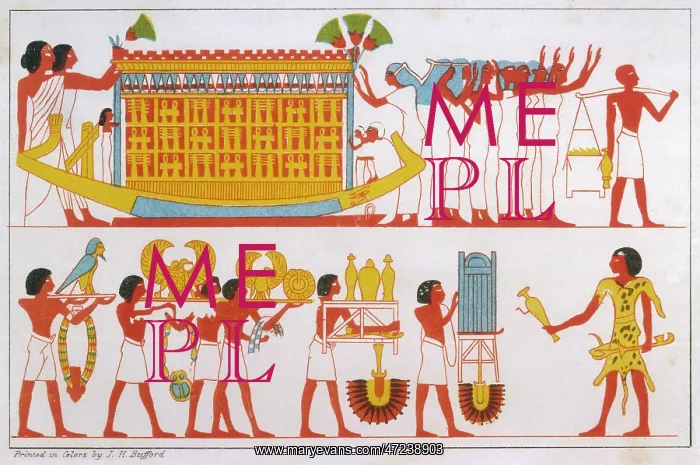 ME
PL
ME
PL
Printed in Colors by J. H. Bufford
www.maryevans.com/47238903